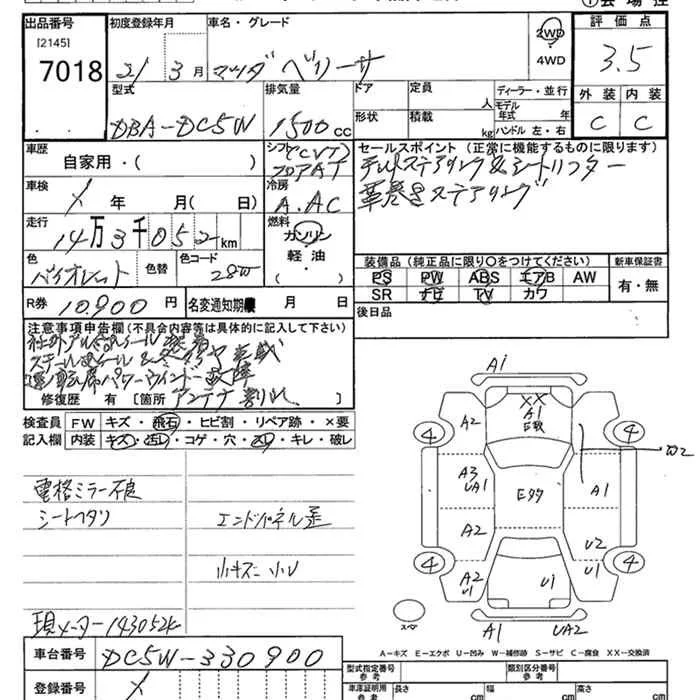 出品番号
[2145]
7018
初度登録年月
21 3月
車名・グレード
マツダ ベリーサ
2WD
4WD
評価点
3.5
外装 内装
C C
型式
DBA-DC5W
排気量
1500cc
ドア
形状
定員
人
積載
kg
ディーラー・並行
モデル
年式 年
ハンドル 左・右
車歴
自家用・( )
シフト (CVT)
フロアAT
セールスポイント (正常に機能するものに限ります)
チルトステアリング&シートリフター
革巻きステアリング
車検
年 月( 日)
冷房
A.AC
走行
14万3千052km
燃料
ガソリン
軽油
( )
色
バイオレット
色替
色コード
28W
装備品 (純正品に限り○をつけてください)
PS PW ABS エアB AW
SR ナビ TV カワ
新車保証書
有・無
R券 10,900円
名変通知期限 月 日
後日品
注意事項申告欄(不具合内容等は具体的に記入して下さい)
社外アルミホイール装着
運転席パワーウインドー故障
修復歴 有 [箇所 アンテナ割れ
検査員 FW キズ・飛石・ヒビ割・リペア跡・×要
記入欄 内装 キズ・汚レ・コゲ・穴・スレ・キレ・破レ
電格ミラー不良
シートヘタリ
エンドパネル歪
小キズ 小U
現メーター143052K
車台番号 DC5W-330900
登録番号
A1
XX
A1
A2
4
4
A3
UA1
A1
A2
U2
4
4
A2
U1
U1
U1
A1
UA2
A-キズ E-エクボ U-凹み W-補修跡 S-サビ C-腐食 XX-交換済
型式指定番号
参考
類別区分番号
参考
車庫証明用
参考
長さ
cm
幅
cm
高さ
cm